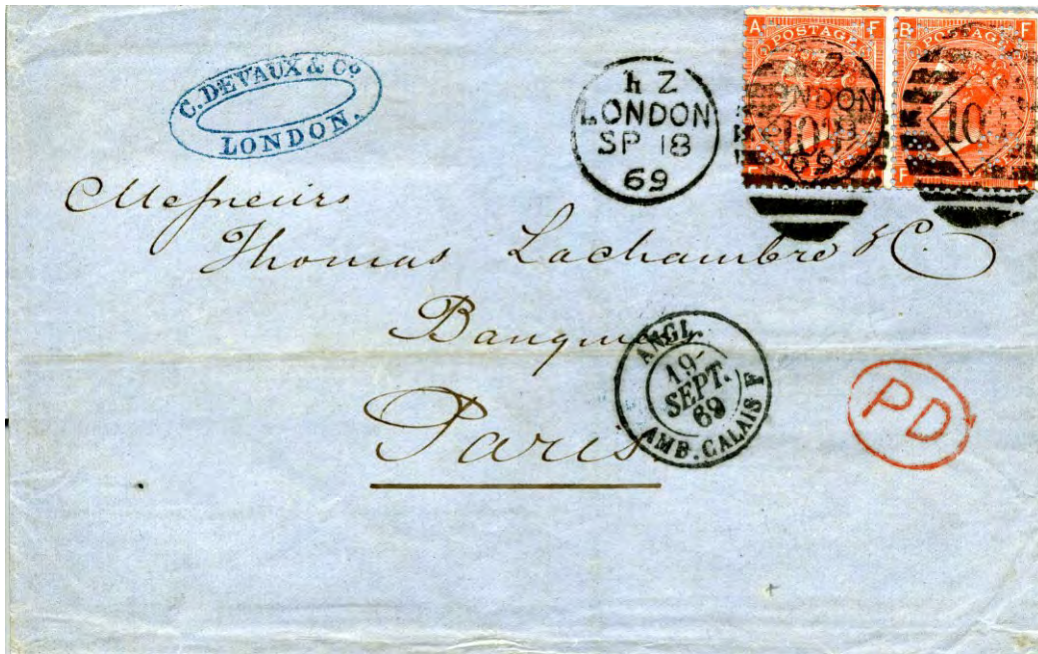 C. DEVAUX & Co
LONDON.
h Z
LONDON
SP 18
69
A POSTAGE F
B POSTAGE F
LONDON
69
F A
F
Messieurs
Thomas Lachambre & C.
Banquiers
Paris
ANGL.
19
SEPT.
69
AMB. CALAIS F
PD